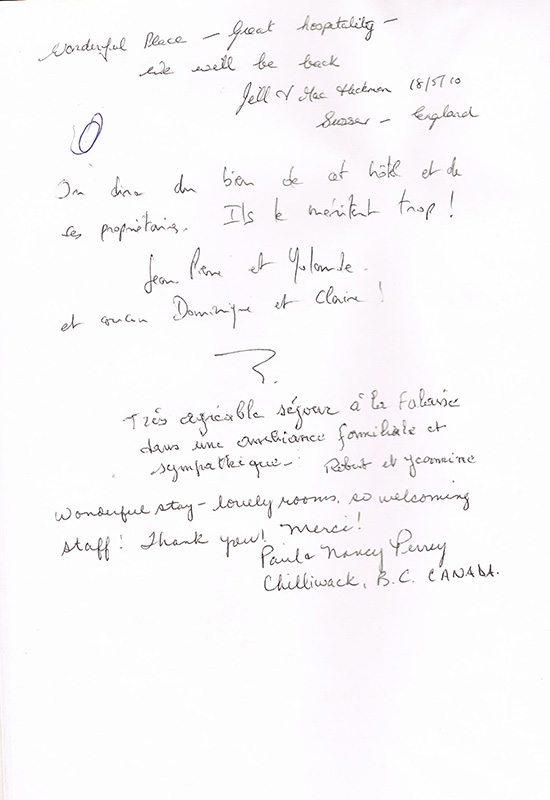 Wonderful Place - Great hospitality -
we will be back
Jill & Mac Hickman 18/5/10
Sussex - England
On dira du bien de cet hôtel et de
ses propriétaires. Ils le méritent trop !
Jean Pierre et Yolande.
et coucou Dominique et Claire !
Très agréable séjour à la Falaise
dans une ambiance familiale et
sympathique - Robert et
Wonderful stay - lovely rooms, so welcoming
staff! Thank you! Merci!
Paul & Nancy Perrey
Chilliwack, B.C. CANADA.